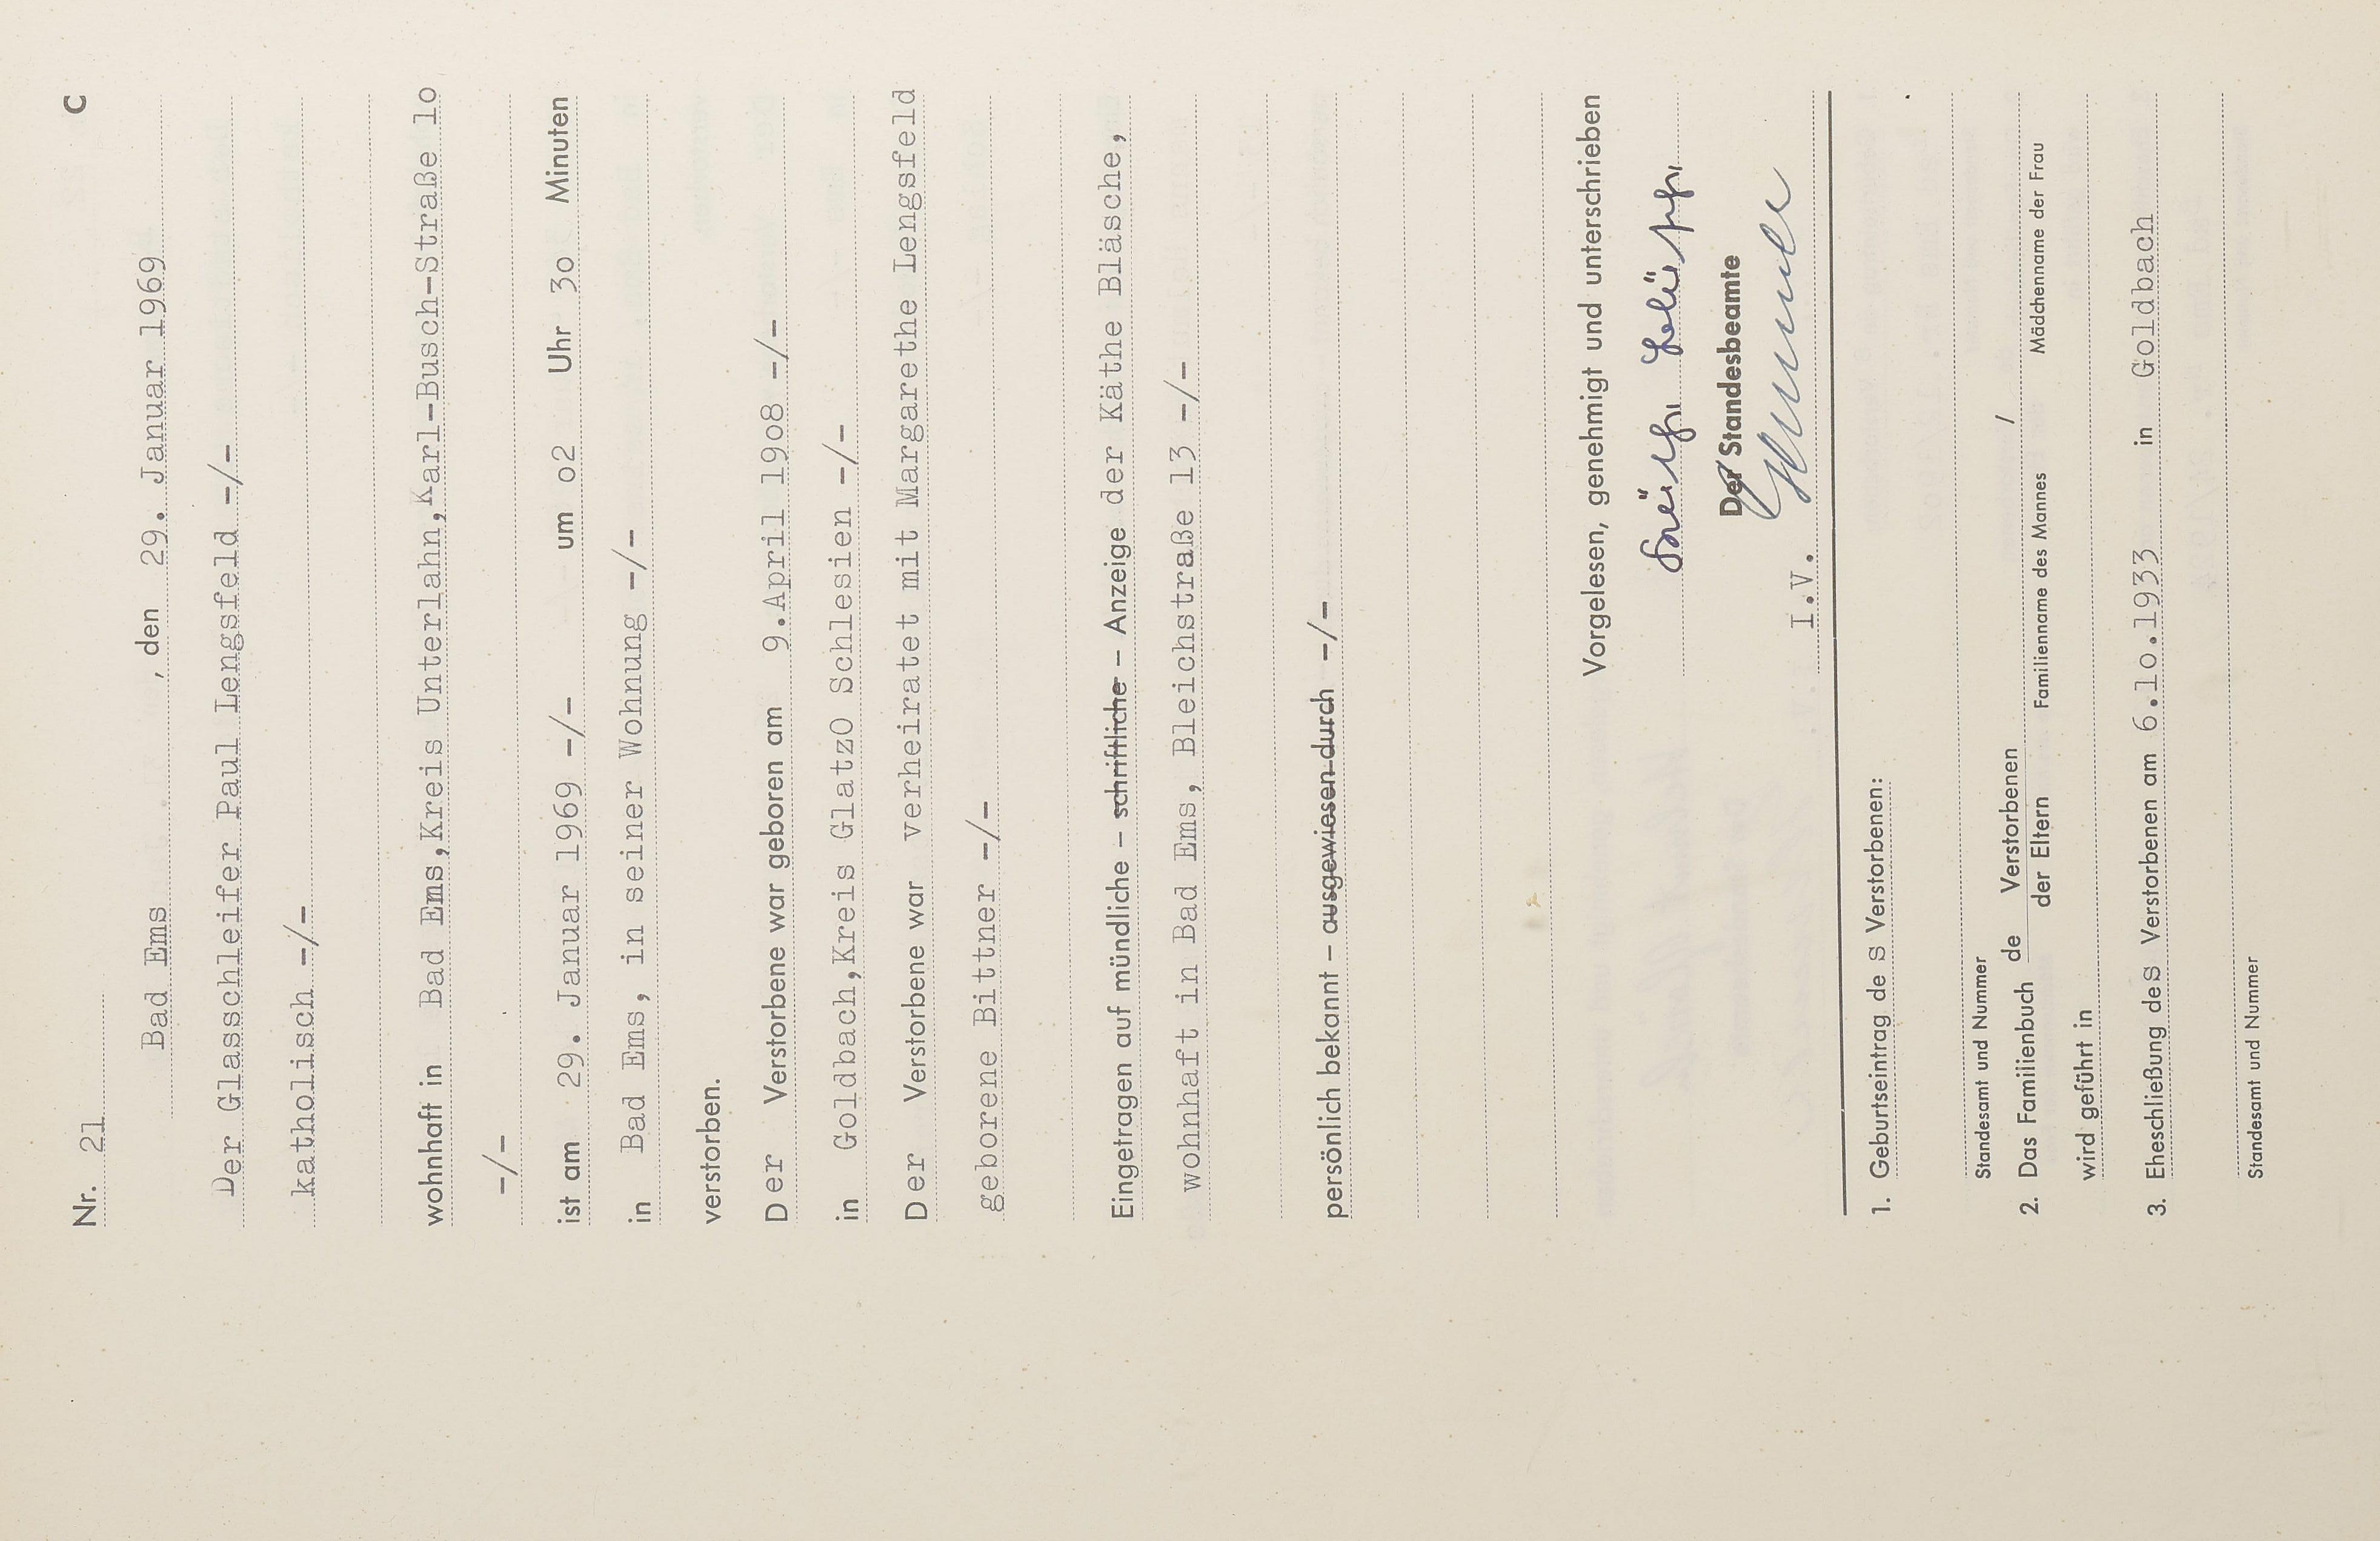 Nr. 21 C
Bad Ems , den 29. Januar 1969
Der Glasschleifer Paul Lengsfeld -/-
katholisch -/-
wohnhaft in Bad Ems,Kreis Unterlahn,Karl-Busch-Straße lo
-/-
ist am 29. Januar 1969 -/- um o2 Uhr 3o Minuten
in Bad Ems, in seiner Wohnung -/-
verstorben.
Der Verstorbene war geboren am 9.April 19o8 -/-
in Goldbach,Kreis GlatzO Schlesien -/-
Der Verstorbene war verheiratet mit Margarethe Lengsfeld
geborene Bittner -/-
Eingetragen auf mündliche – schriftliche – Anzeige der Käthe Bläsche,
wohnhaft in Bad Ems, Bleichstraße 13 -/-
persönlich bekannt – ausgewiesen durch -/-
Vorgelesen, genehmigt und unterschrieben
Der Standesbeamte
I.V.
1. Geburtseintrag de s Verstorbenen:
Standesamt und Nummer
2. Das Familienbuch de Verstorbenen /
der Eltern Familienname des Mannes Mädchenname der Frau
wird geführt in
3. Eheschließung des Verstorbenen am 6.1o.1933 in Goldbach
Standesamt und Nummer